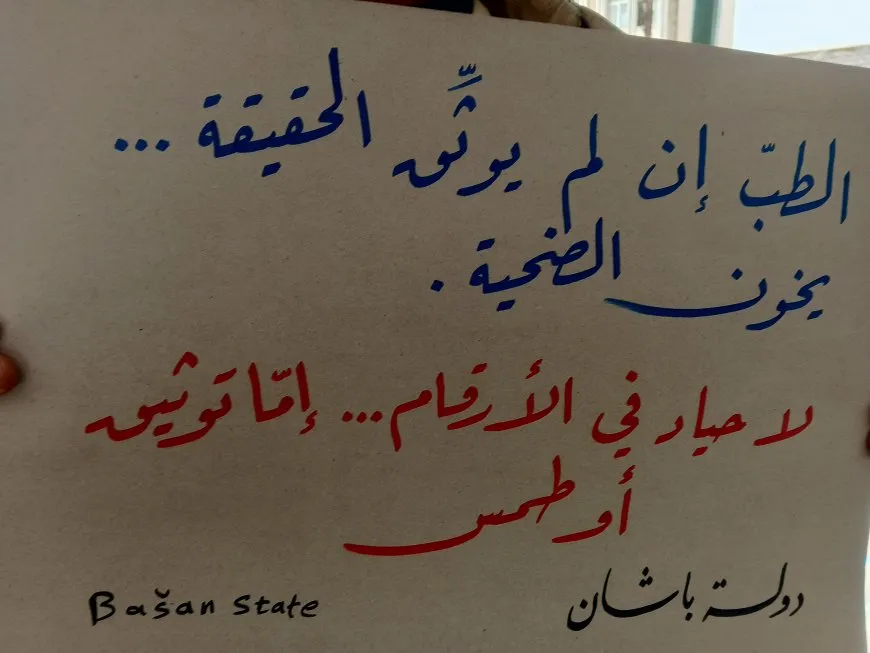 الطبّ إن لم يوثّق الحقيقة ...
يخون الضحية .
لا حياد في الأرقام... إمّا توثيق
أو طمس
دولة باشان
Bašan State